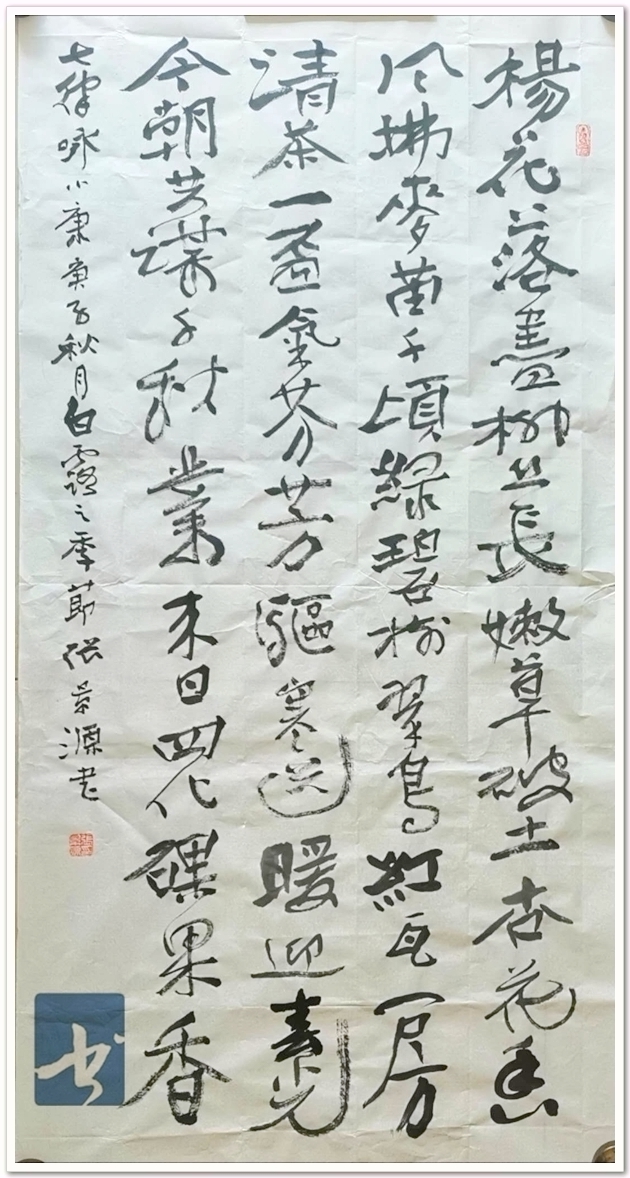 楊花落盡柳丝長嫩草破土杏花香
风拂麥苗千頃綠碧翠鳥紅瓦房
清茶一盃氣芬芳驅寒送暖迎春光
今朝共議千秋業来日四化碩果香
七律咏小康庚子秋月白露之季節张景源书
书